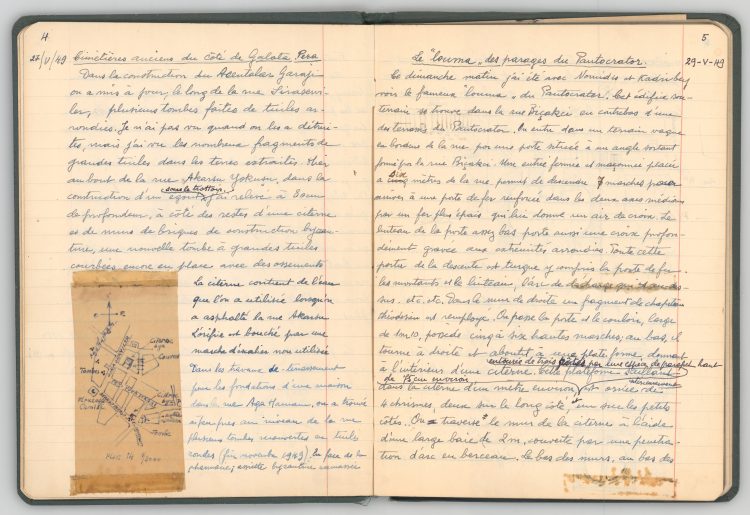 4
27/V/49 Cimetières anciens du côté de Galata Pera
Dans la construction du Acentalar Garaji
on a mis à jour, le long de la rue Siraservi-
ler, plusieurs tombes faites de tuiles ar-
rondies. Je n'ai pas vu quand on les a détrui-
tes, mais j'ai vu les nombreux fragments de
grandes tuiles dans les terres extraites. Hier
au bout de la rue Akarsu Yokuşu, dans la
sous le trottoir
construction d'un égout j'ai relevé à 80cm
de profondeur, à côté des restes d'une citerne
et de murs de briques de construction byzan-
tine, une nouvelle tombe à grandes tuiles
courbées encore en place avec des ossements
La citerne contient de l'eau
que l'on a utilisée lorsqu'on
a asphalté la rue Akarsu
L'orifice est bouché par une
marche d'escalier non utilisée
Dans les travaux de terrassement
pour les fondations d'une maison
dans la rue Aga Hamam, on a trouvé
à peu près au niveau de la rue
plusieurs tombes recouvertes en tuiles
rondes (fin novembre 1949) En face de la
pharmacie; assiette byzantine ramassée
Citerne
Tombes
5
Le "louma" des parages du Pantocrator.
29-V-49
Ce dimanche matin j'ai été avec Nomidis et Kadri bey
voir le fameux "louma" du Pantocrator. Cet édifice sou-
terrain se trouve dans la rue Biçakci en contrebas d'une
des terrasses du Pantocrator. On entre dans un terrain vague
en bordure de la rue par une porte située à un angle sortant
formé par la rue Biçakci. Une entrée fermée et maçonnée placée
à dix mètres de la rue permet de descendre 7 marches pour
arriver à une porte de fer renforcé dans les deux axes médians
par un fer plus épais qui lui donne un air de croix. Le
linteau de la porte assez bas porte aussi une croix profon-
dément gravée aux extrémités arrondies. Toute cette
partie de la descente est turque y compris la porte de fer
les montants et le linteau, l'arc de décharge qui est au des-
sus. etc. etc. Dans le mur de droite un fragment de chapiteau
théodosien est remployé. On passe la porte et le couloir, large
de 1m10, possède cinq à six hautes marches; au bas, il
tourne à droite et aboutit à une plateforme donnant
entourée de trois côtés par une espèce de parapet haut
à l'intérieur d'une citerne. Cette plateforme saillant
de 75cm environ
dans la citerne d'un mètre environ est ornée de
4 chrismes, deux sur le long côté, et un sur les petits
côtés. On traverse le mur de la citerne à l'aide
d'une large baie de 2m, couverte par une pénétra-
tion d'arc en berceau. Le bas des murs, au bas des